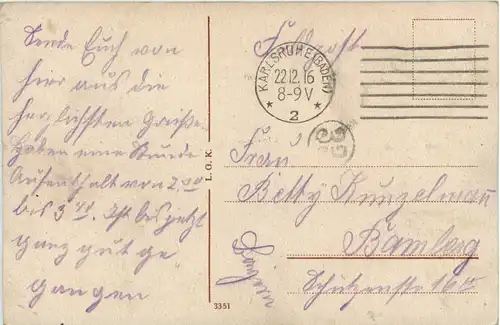 Sende Euch von
hier aus die
herzlichsten Grüße
haben eine Stunde
Aufenthalt von 2.00
bis 3.40. Ist bis jetzt
ganz gut ge
gangen
L.G.K.
3351
Feldpost
KARLSRUHE (BADEN)
22.12.16
8-9V
* 2 *
Frau
Betty Kunzelmañ
Bamberg
Schützenstr 16